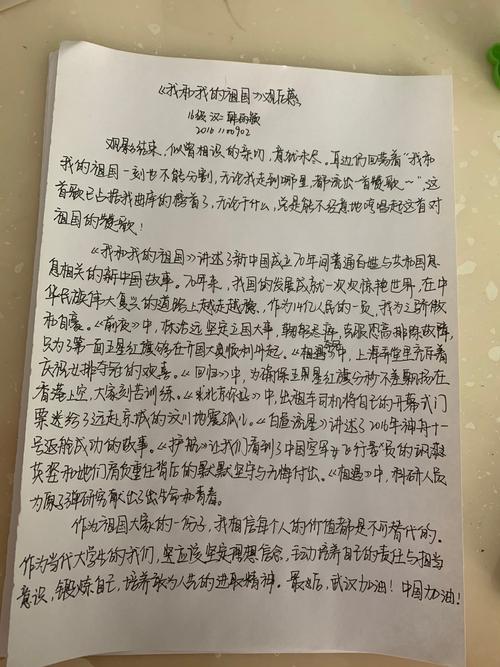 《我和我的祖国》观后感
16级 汉二 韩雨
20161100902
观影结束，似曾相识的亲切，意犹未尽。耳边仍回荡着“我和
我的祖国一刻也不能分割，无论我走到哪里，都流出一首赞歌～”，这
首歌已占据我曲库的榜首了，无论干什么，总是能不经意地哼唱起这首对
祖国的赞歌！
《我和我的祖国》讲述了新中国成立70年间普通百姓与共和国息
息相关的新中国故事。70年来，我国的发展成就一次次惊艳世界，在中
华民族伟大复兴的道路上越走越稳，作为14亿人民的一员，我为之骄傲
和自豪。《前夜》中，林治远坚定立国大事，克服恐高排除故障，
只为了第一面五星红旗能够在开国大典顺利升起。《相遇》中，上海弄堂里充斥着
庆祝女排夺冠的欢喜。《回归》中，为确保五星红旗分秒不差飘扬在
香港上空，大家刻苦训练。《北京你好》中，出租车司机将自己的开幕式门
票送给了远赴京城的汶川地震孤儿。《白昼流星》讲述了2016年神舟十一
号返航成功的故事。《护航》让我们看到了中国空军女飞行员的飒爽
英姿和她们肩负重任背后的默默坚守与无悔付出。《相遇》中，科研人员
为原子弹研究献出了生命和青春。
作为祖国大家的一份子，我相信每个人的价值都是不可替代的。
作为当代大学生的我们，更应该坚定理想信念，主动培养自己的责任与担当
意识，锻炼自己，培养敢为人先的进取精神。最后，武汉加油！中国加油！